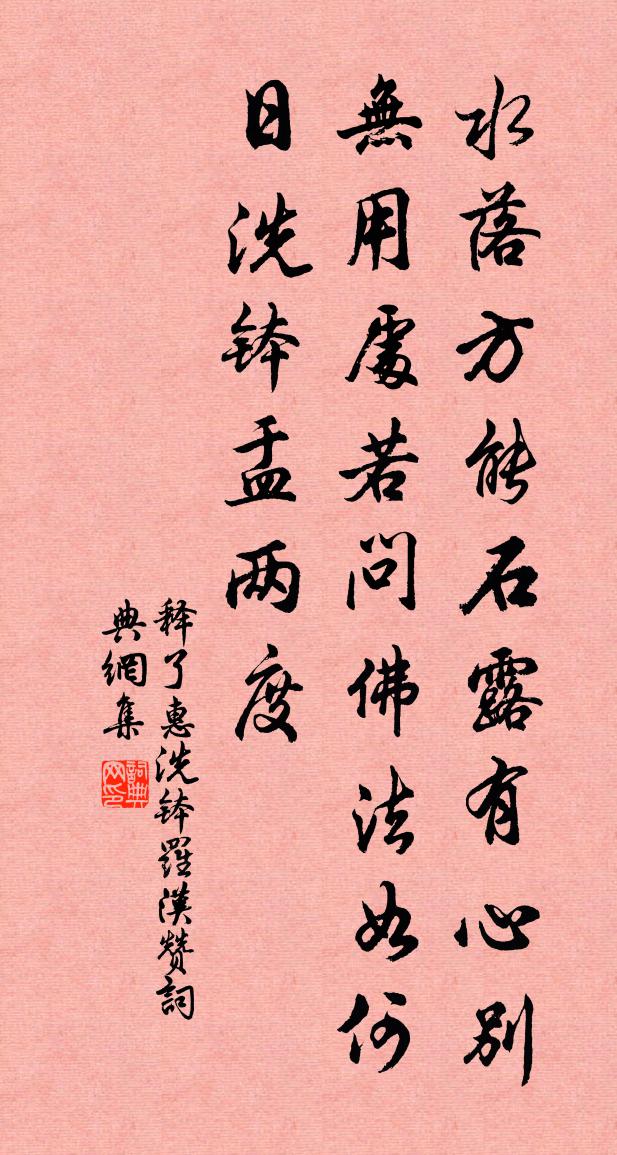 水落方能石露有心別
無用處若問佛法如何
日洗鉢盂兩度
释了惠洗鉢羅漢赞詞
典網集
詞典网印